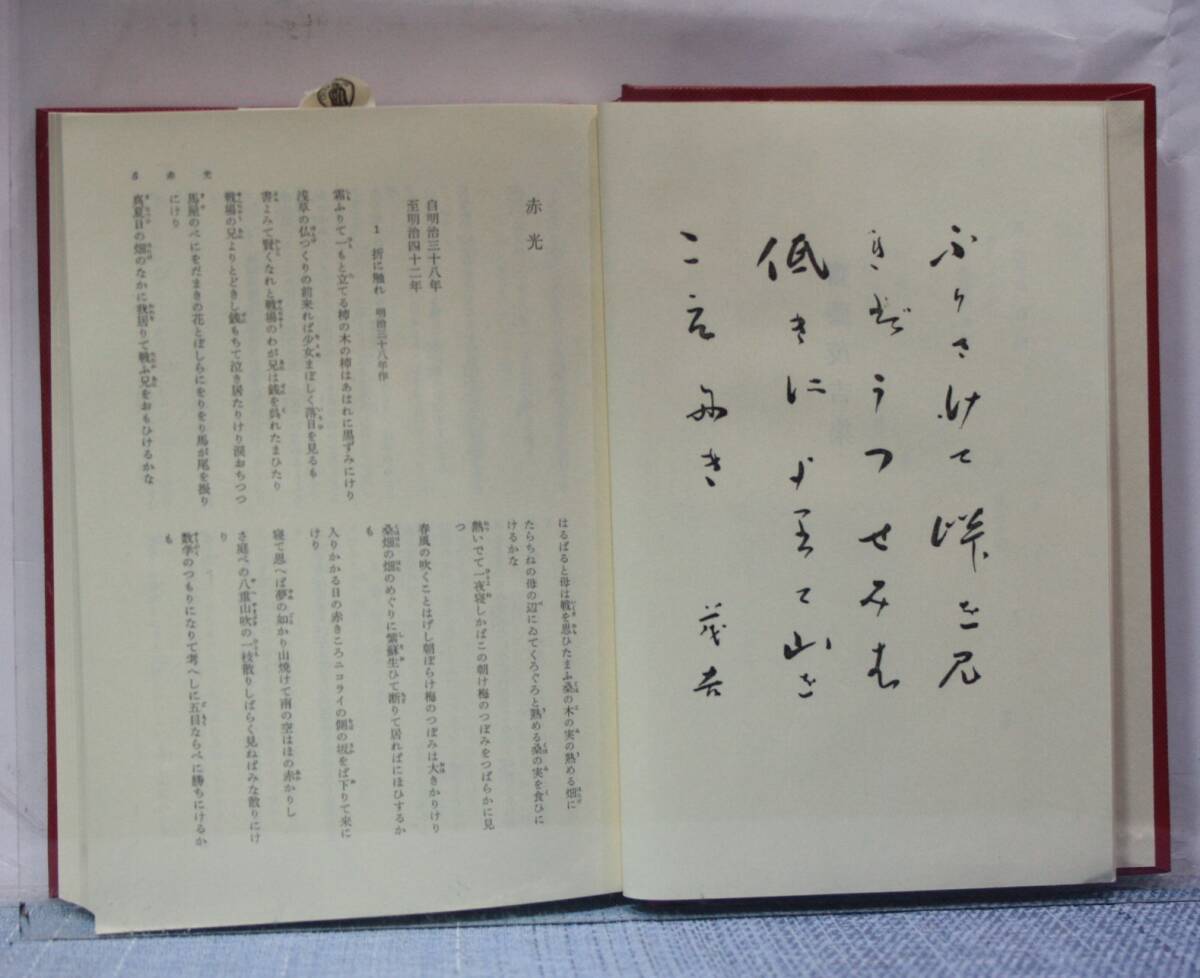 ふりさけて峠を見
ればうつせみは
低きによりて山を
こえにき　茂吉
赤光
自明治三十八年
至明治四十二年
1　折に触れ　明治三十八年作
霜ふりて一もと立てる柿の木の柿はあはれに黒ずみにけり
浅草の仏つくりの前来れば少女まぼしく落日を見るも
書よみて賢くなれと戦場のわが兄は銭を呉れたまひたり
戦場の兄よりとどきし銭もちて泣き居たりけり涙おちつつ
馬屋のべにをだまきの花とぼしらにをりをり馬が尾を振り
にけり
真夏日の畑のなかに我居りて戦ふ兄をおもひけるかな
はるばると母は戦を思ひたまふ桑の木の実の熟める畑に
たらちねの母の辺にゐてくろぐろと熟める桑の実を食ひに
けるかな
熱いでて一夜寝しかばこの朝け梅のつぼみをつばらかに見
つ
春風の吹くことはげし朝ぼらけ梅のつぼみは大きかりけり
桑畑の畑のめぐりに紫蘇生ひて断りて居ればにほひするか
も
入りかかる日の赤きころニコライの側の坂をば下りて来に
けり
寝て思へば夢の如かり山焼けて南の空はほの赤かりし
さ庭べの八重山吹の一枝散りしばらく見ねばみな散りにけ
り
数学のつもりになりて考へしに五目ならべに勝ちにけるか
も
5　赤光